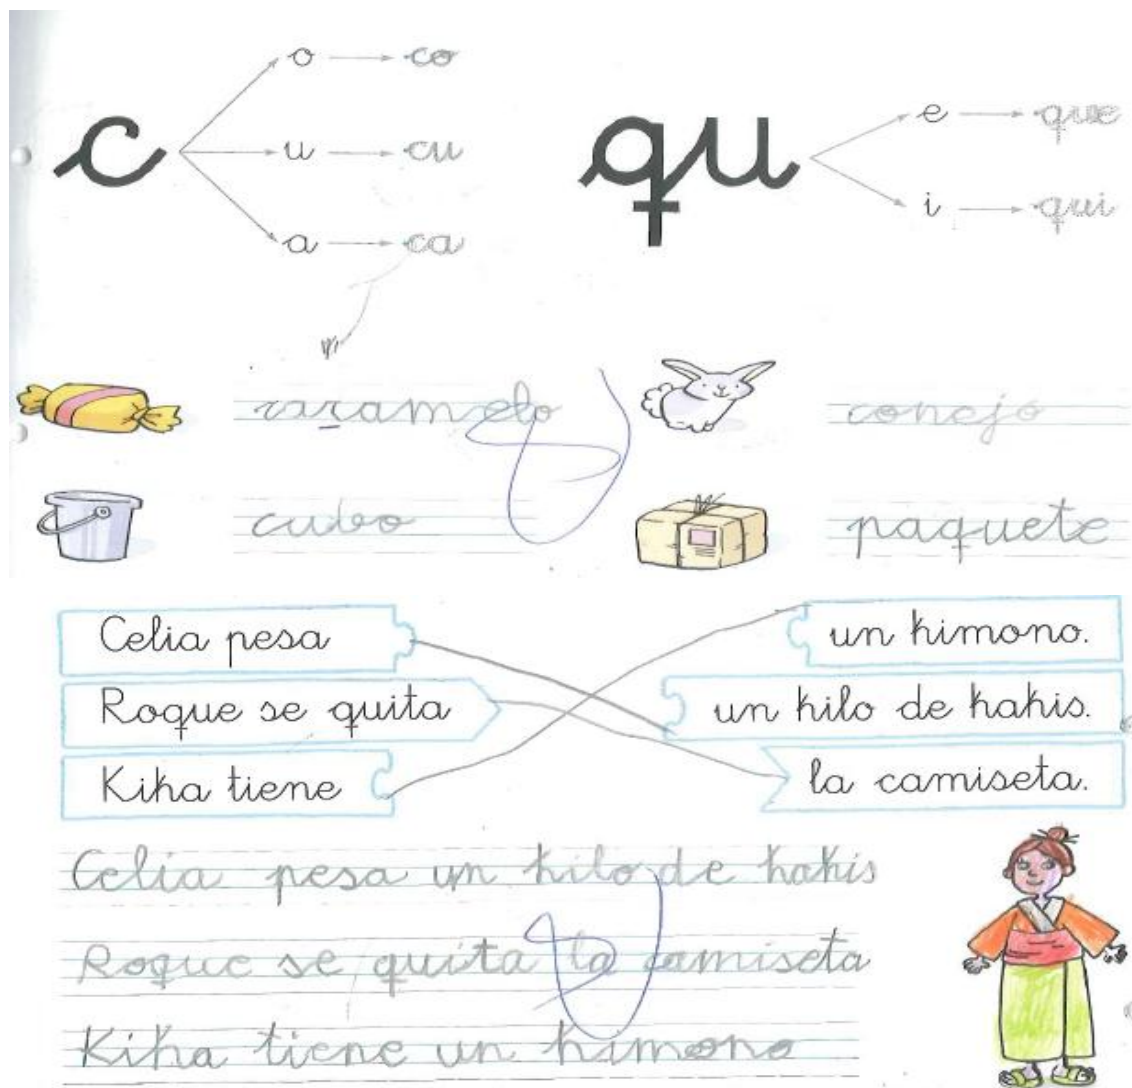 o co
c u cu
a ca
qu e que
i qui
caramelo
conejo
cubo
paquete
Celia pesa
un kimono.
Roque se quita
un kilo de kakis.
Kika tiene
la camiseta.
Celia pesa un kilo de kakis
Roque se quita la camiseta
Kika tiene un kimono